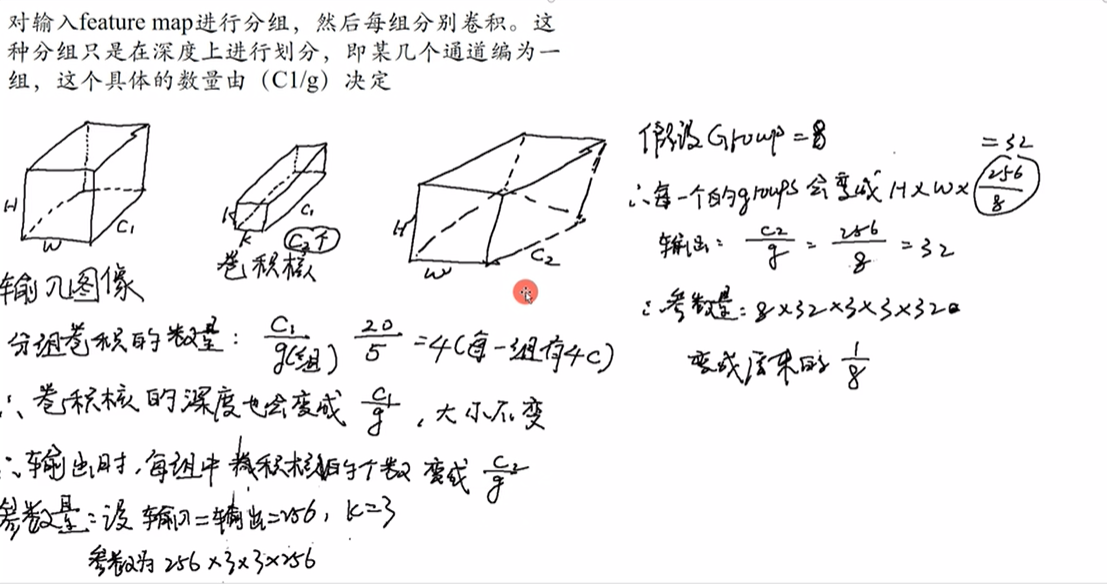 对输入feature map进行分组，然后每组分别卷积。这
种分组只是在深度上进行划分，即某几个通道编为一
组，这个具体的数量由（C1/g）决定
H
W
C₁
输入图像
K
K
C₁
C₂个
卷积核
H
W
C₂
分组卷积的数量： C₁/g(组) 20/5 =4(每一组有4C)
∴ 卷积核的深度也会变成 C₁/g ，大小不变
∴输出时，每组中卷积核的个数变成 C₂/g
参数量：设输入=输出=256，K=3
参数为 256×3×3×256
假设Groups=8
=32
∴每一个的groups会变成 H×W× 256/8
输出： C₂/g = 256/8 = 32
∴参数量：8×32×3×3×32
变成原来的 1/8